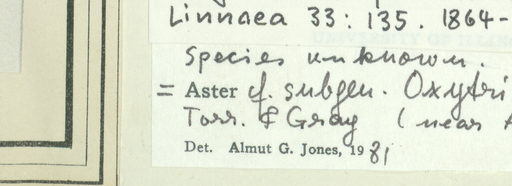 Linnaea 33: 135. 1864-
Species unknown.
= Aster cf. subgen. Oxytri
Torr. & Gray (near
Det. Almut G. Jones, 1981